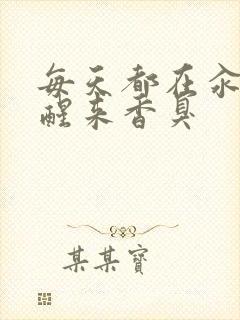 每天都在汆
醒来香臭
某某寶